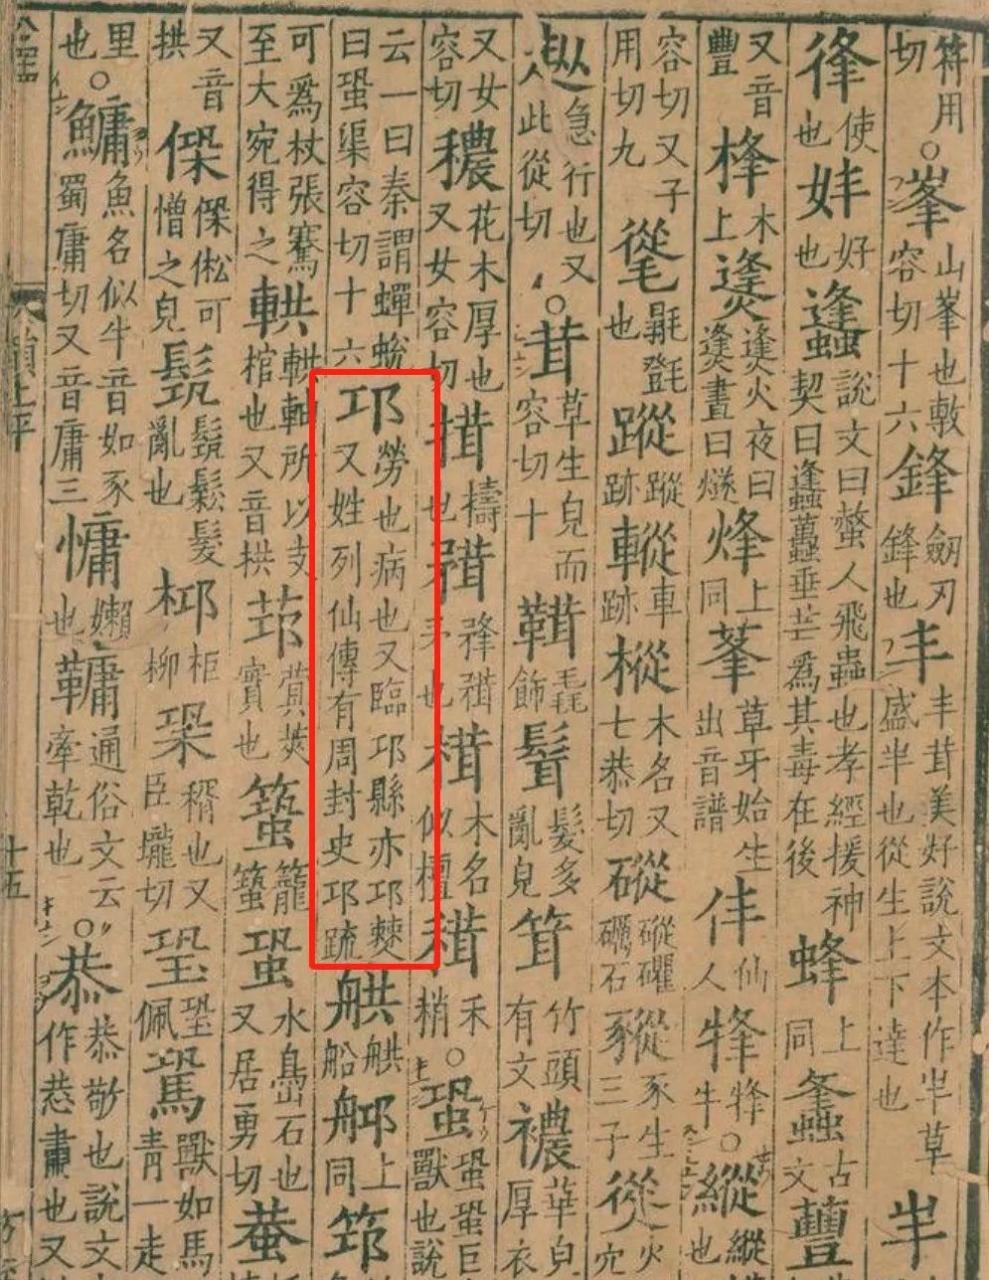 符用切○峯山峯也敷容切十六鋒劒刃鋒也丰丰茸美好說文本作半草盛半也從生上下達也半
使也妦好也蠭說文曰螫人飛蟲也孝經援神契曰蠭蠆垂芒爲其毒在後蜂上同古文蘴
又音豐桻木上㷭㷭火夜曰㷭晝曰燧烽上同莑草牙始生出音譜仹仙人犎犎牛○縱縱也
容切又子用切九也蹤蹤跡䡮車跡樅木名又七恭切磫磫礪石豵豕生三子火穴
急行也又此從切○茸草生皃而容切十毳飾髶髮多亂皃竹頭有文襛華皃厚衣
又女容切穠花木厚也又女容切搑擣也木名似檀禾稍○蛩蛩蛩巨獸也說
云一曰秦謂蟬蛻曰蛩渠容切十六邛勞也病也又臨邛縣亦邛僰又姓列仙傳有周封史邛疏舼舼船上同筇
可爲杖張騫至大宛得之輁輁軸所以支棺也又音拱莢實也蛩水鳥石也又居勇切
又音拱㑻㑻倯可憎之皃鬆髮亂也桏柜柳也又臣壠切佩獸如馬青一走
里也○鱅魚名似牛音如豕蜀庸切又音庸三慵嬾也通俗文云牽乾也○恭恭敬也說文作㳟肅也又
十五